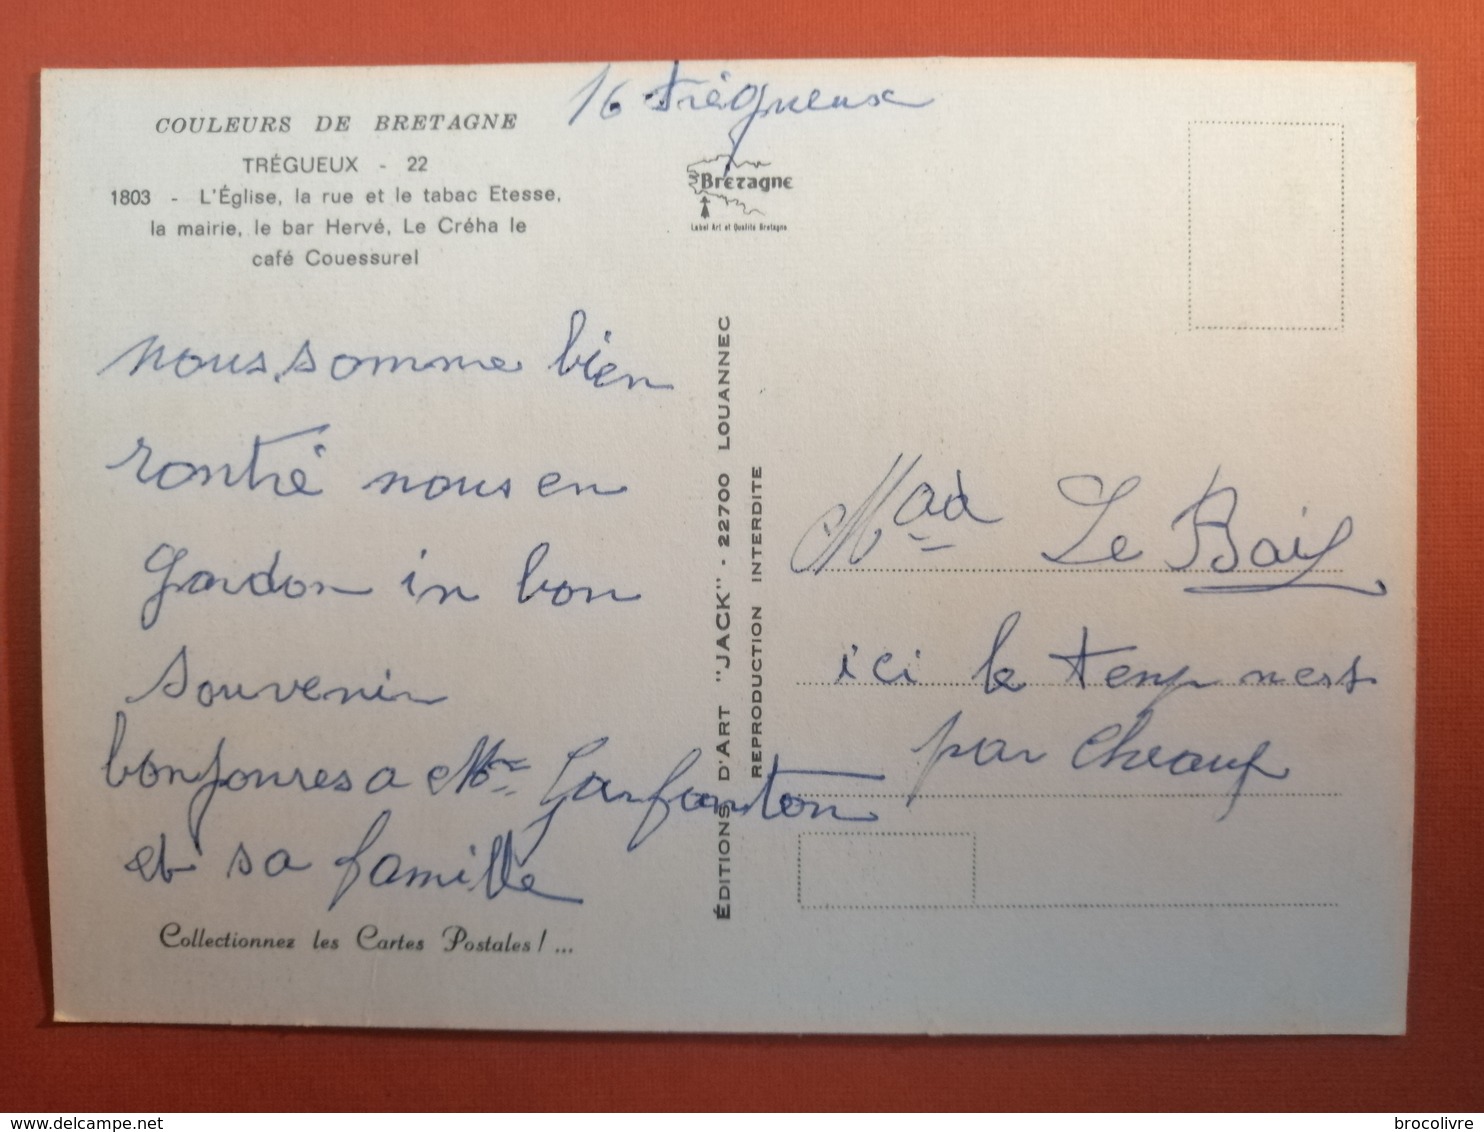 16 trégueux
COULEURS DE BRETAGNE
TRÉGUEUX - 22
1803 - L'Église, la rue et le tabac Etesse,
la mairie, le bar Hervé, Le Créha le
café Couessurel
Bretagne
Label Art et Qualité Bretagne
nous somme bien
rontré nous en
gardon in bon
souvenir
bonjoures a Mme
et sa famille
Collectionnez les Cartes Postales ! ...
ÉDITIONS D'ART "JACK" - 22700 LOUANNEC
REPRODUCTION INTERDITE
Mad Le Bail
ici le temp nest
par cheau
www.delcampe.net
brocolivre